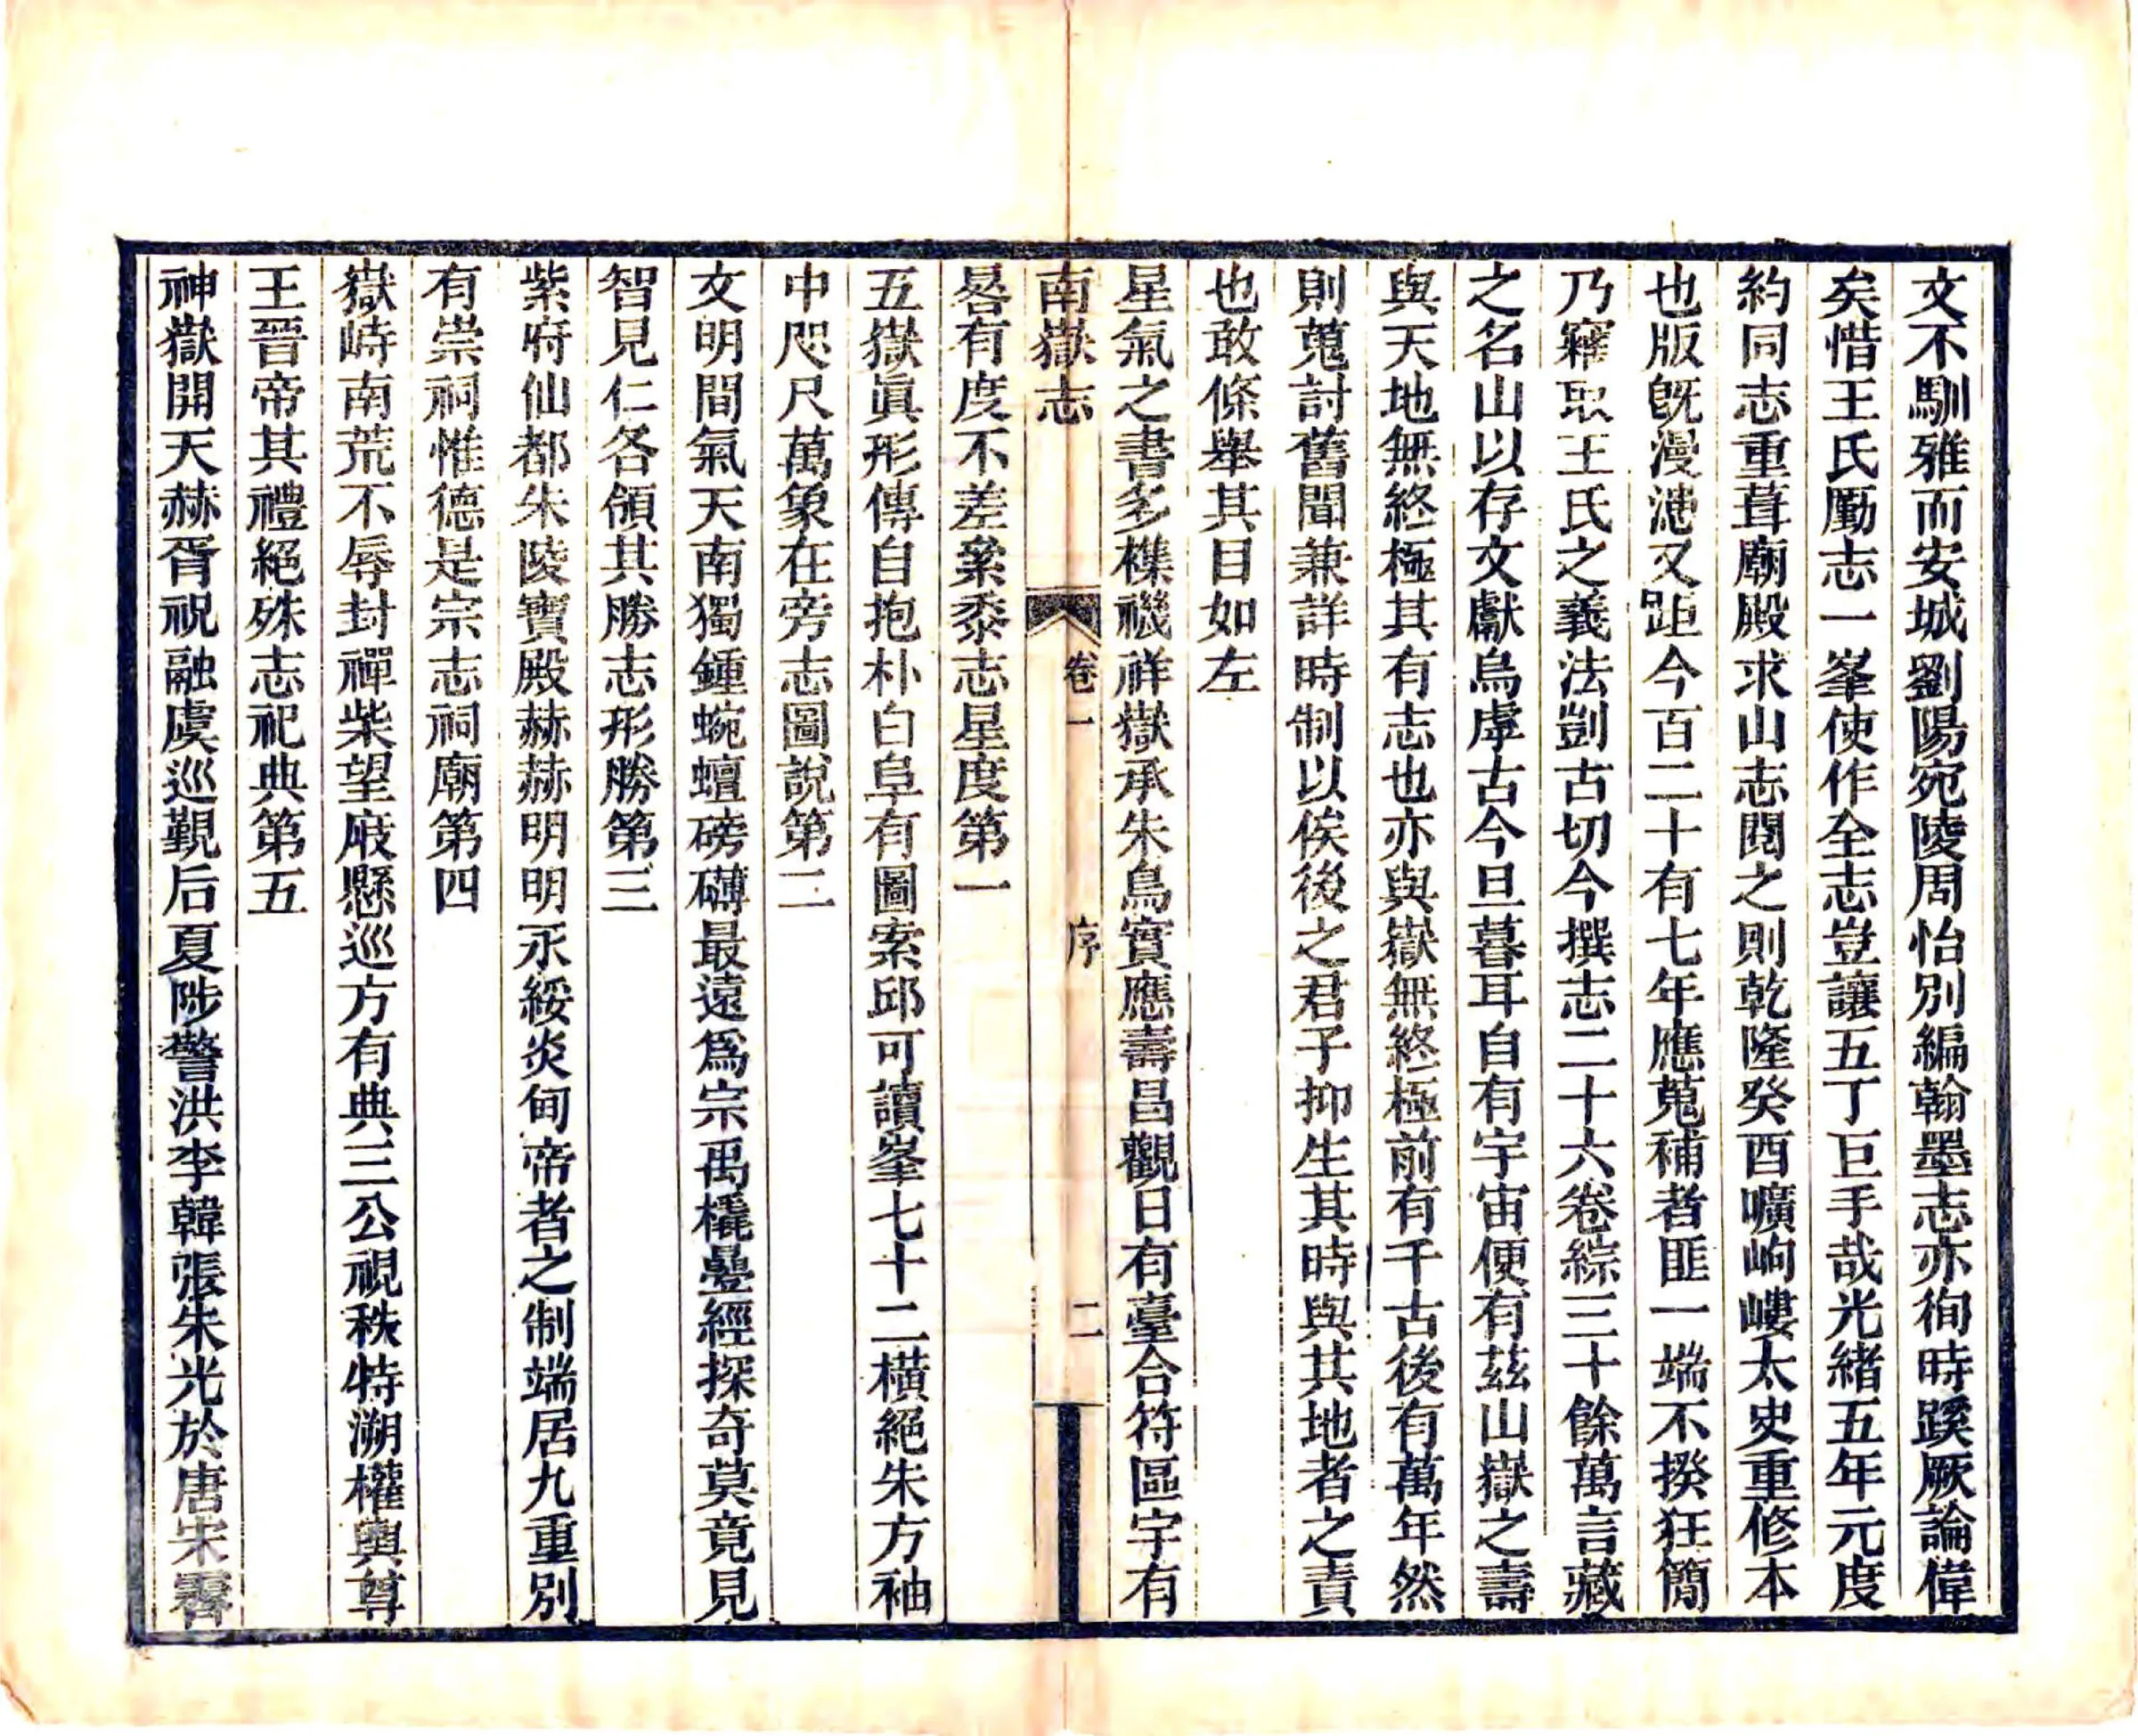 文不馴雅而安城劉陽宛陵周怡別編翰墨志亦徇時蹊厥論偉
矣惜王氏勵志一峯使作全志豈讓五丁巨手哉光緒五年元度
約同志重葺廟殿求山志閱之則乾隆癸酉曠岣嶁太史重修本
也版旣漫漶又距今百二十有七年應蒐補者匪一端不揆狂簡
乃竊取王氏之義法剴古切今撰志二十六卷綜三十餘萬言藏
之名山以存文獻烏虖古今旦暮耳自有宇宙便有茲山嶽之壽
與天地無終極其有志也亦與嶽無終極前有千古後有萬年然
則蒐討舊聞兼詳時制以俟後之君子抑生其時與其地者之責
也敢條舉其目如左
星氣之書多櫟禨祥嶽承朱鳥實應壽昌觀日有臺合符區宇有
南嶽志
卷一
序
二
晷有度不差絫黍志星度第一
五嶽眞形傳自抱朴白阜有圖索邱可讀峯七十二橫絕朱方袖
中咫尺萬象在旁志圖說第二
文明間氣天南獨鍾蜿蟺磅礴最遠爲宗禹橇曇經探奇莫竟見
智見仁各領其勝志形勝第三
紫府仙都朱陵寶殿赫赫明明永綏炎甸帝者之制端居九重別
有崇祠惟德是宗志祠廟第四
嶽峙南荒不辱封禪柴望庪懸巡方有典三公視秩特溯權輿尊
王晉帝其禮絕殊志祀典第五
神嶽開天赫胥祝融虞巡覲后夏陟警洪李韓張朱光於唐宋霽